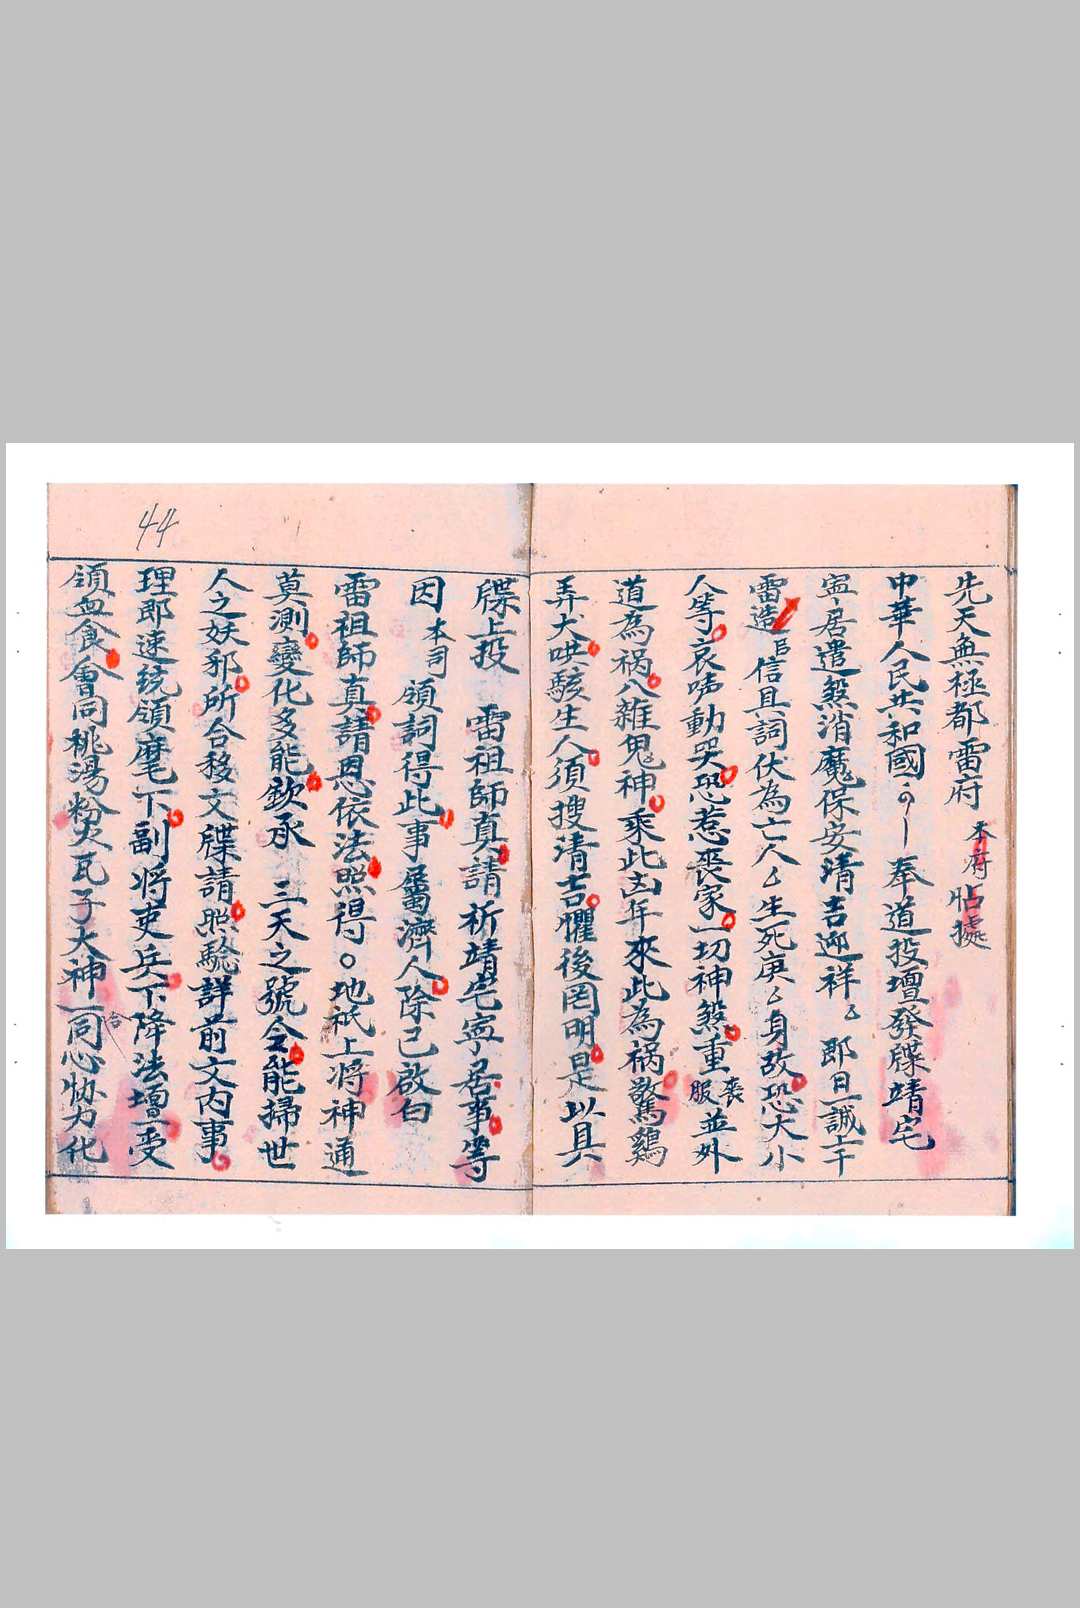 先天無極都雷府 本府 帖據
中華人民共和國 奉道投壇發牒靖宅
寧居遣煞消魔保安清吉迎祥 即日誠干
雷造 信具詞伏為亡人 生死庚 身故恐大小
人等哀唏動哭恐惹喪家一切神煞重 喪服 並外
道為禍八雜鬼神乘此凶年來此為禍驚鷄
弄犬哄駭生人須搜清吉懼後罔明是以具
牒上投 雷祖師真請祈靖宅寧居事等
因 本司 領詞得此事屬濟人除已啟白
雷祖師真請恩依法照得○地祇上將神通
莫測變化多能欽承 三天之號令能掃世
人之妖邪所合移文牒請照驗詳前文內事
理即速統領麾下副將吏兵下降法壇受
領血食會同桃湯粉火瓦子大神一同心協力化
合
44